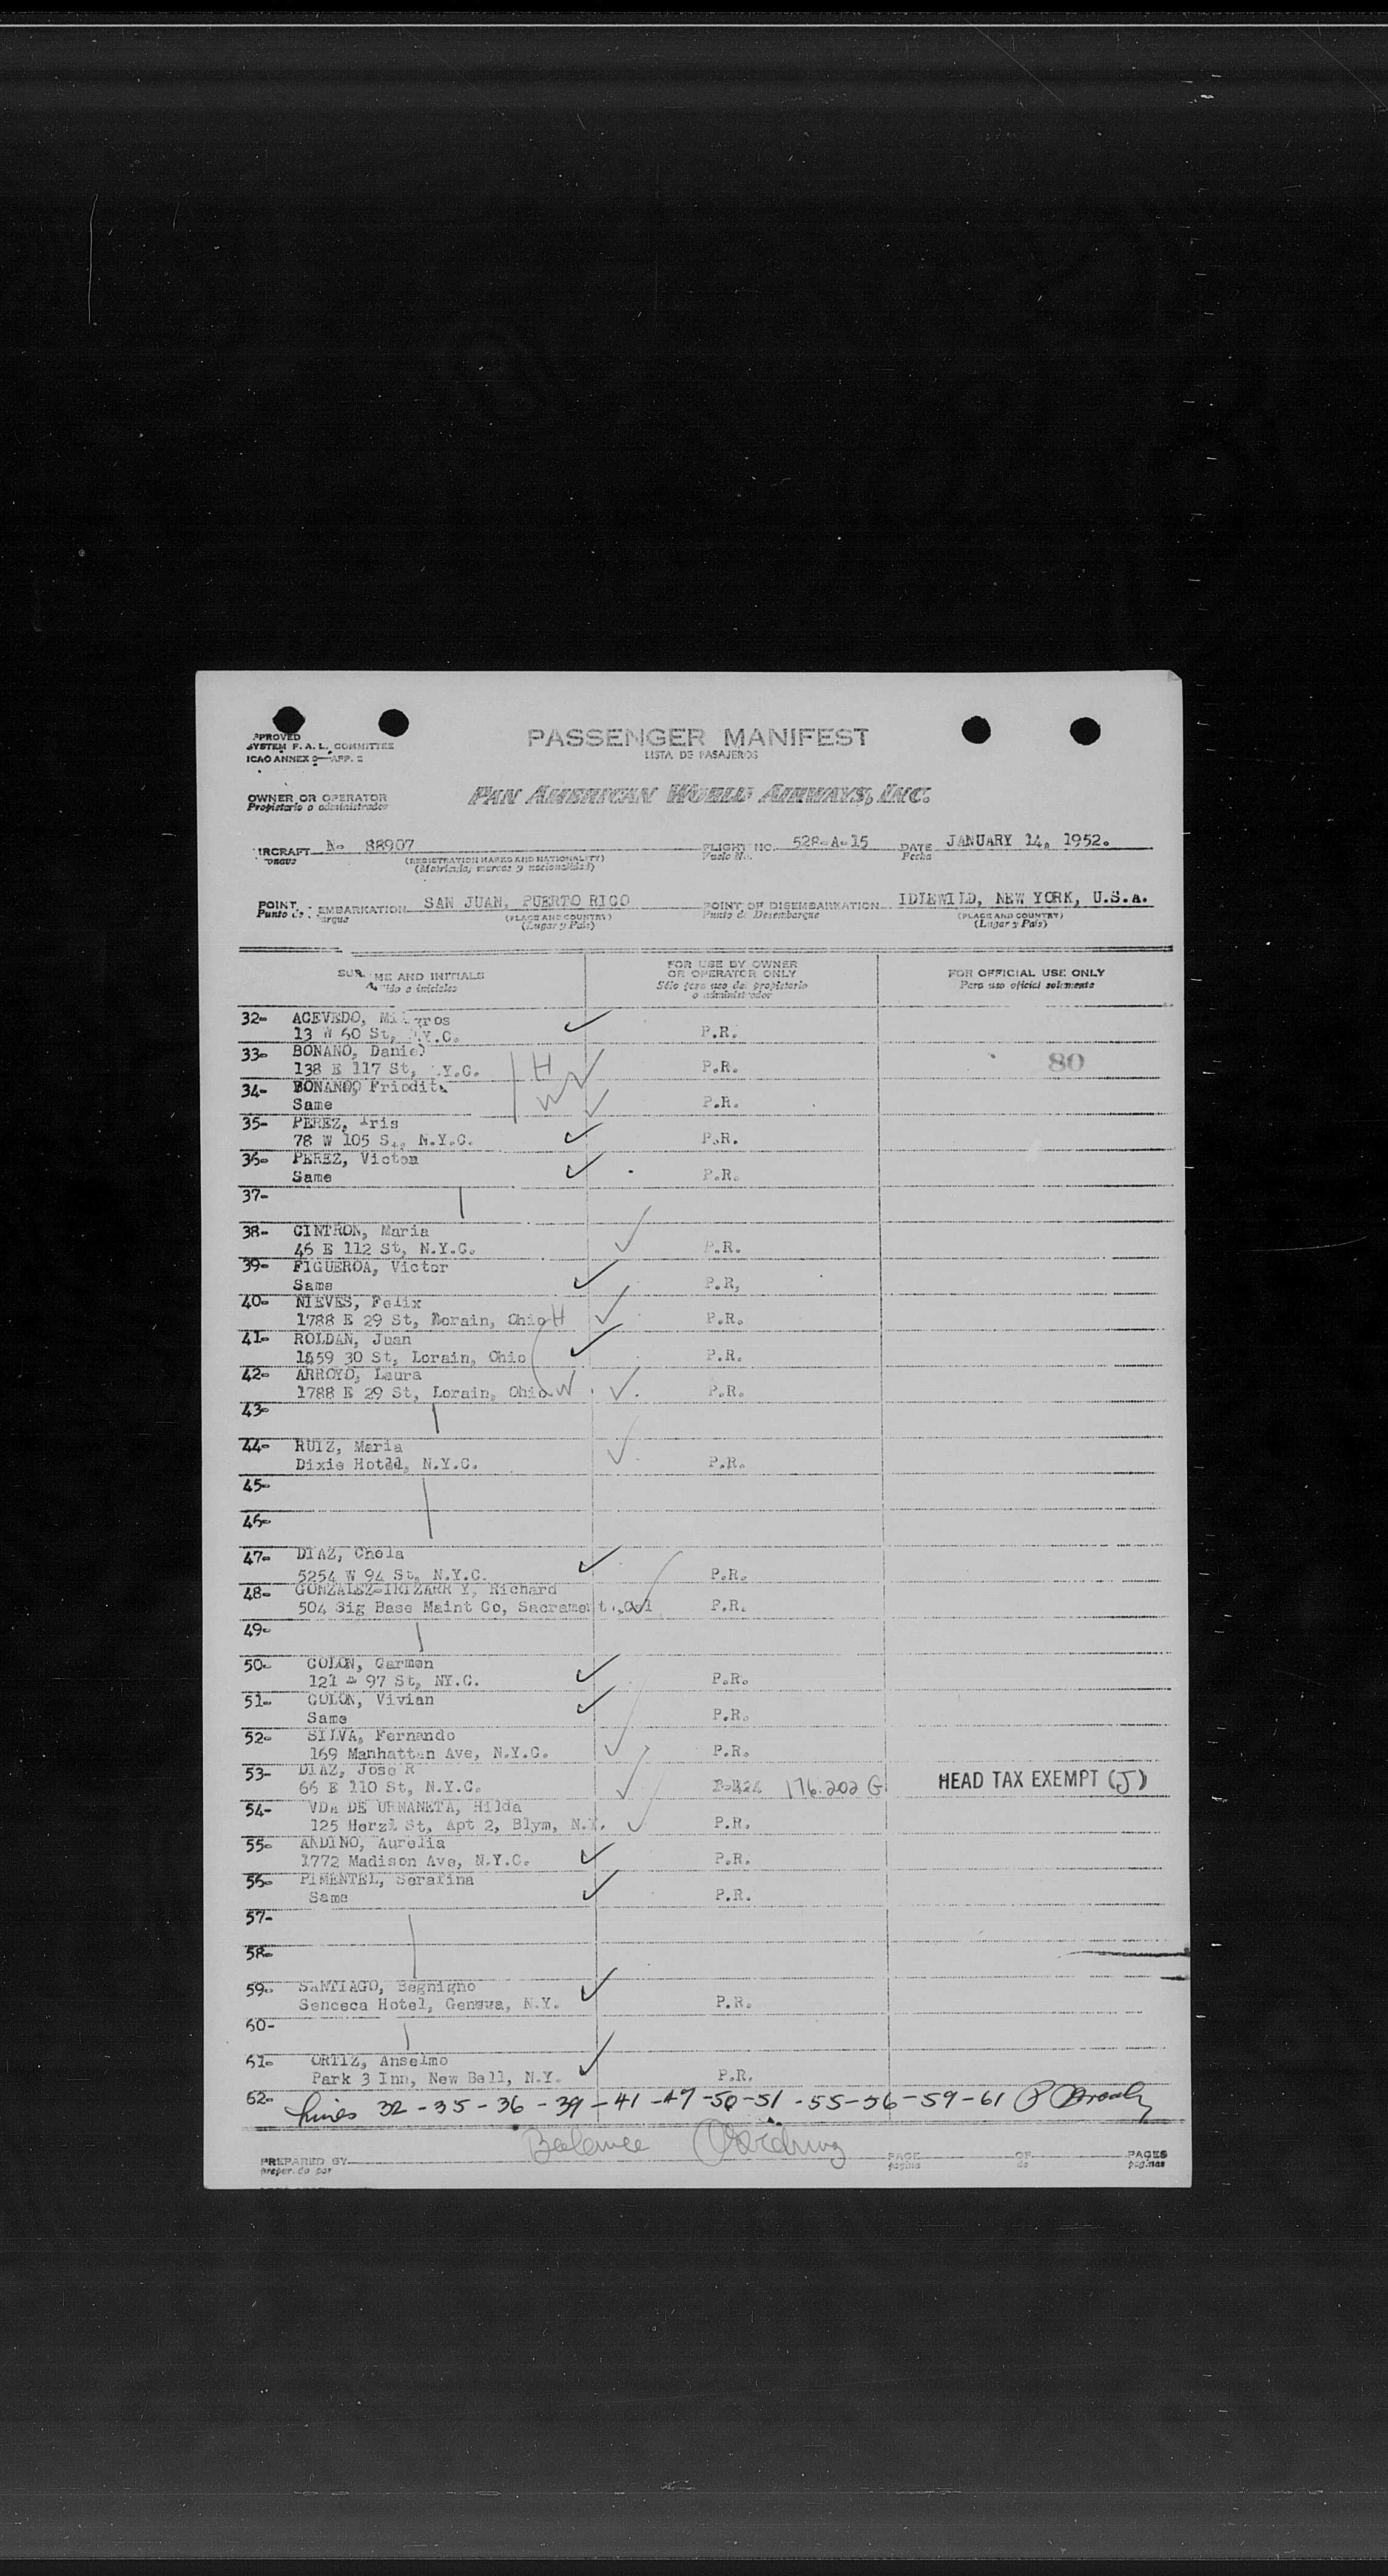 PASSENGER MANIFEST
LISTA DE PASAJEROS
PPROVED
SYSTEM F. A. L. COMMITTEE
ICAO ANNEX 9—APP. 2
OWNER OR OPERATOR
Propietario o administrador
PAN AMERICAN WORLD AIRWAYS, INC.
IRCRAFT N- 88907 FLIGHT NO. 528-A-15 DATE JANUARY 14, 1952.
(REGISTRATION MARKS AND NATIONALITY) Vuelo No. Fecha
(Matricula, marcas y nacionalidad)
POINT EMBARKATION SAN JUAN, PUERTO RICO POINT OF DISEMBARKATION IDLEWILD, NEW YORK, U.S.A.
Punto de (PLACE AND COUNTRY) Punto de Desembarque (PLACE AND COUNTRY)
(Lugar y País) (Lugar y País)
SUR ME AND INITIALS
FOR USE BY OWNER
OR OPERATOR ONLY
Sólo para uso del propietario
o administrador
FOR OFFICIAL USE ONLY
Para uso oficial solamente
32- ACEVEDO, Mi gros
13 W 60 St, N.Y.C. P.R.
33- BONANO, Daniel
138 E 117 St, .Y.C. H P.R. 80
34- BONANO, Friodit
Same W P.R.
35- PEREZ, Iris
78 W 105 St, N.Y.C. P.R.
36- PEREZ, Victor
Same P.R.
37-
38- CINTRON, Maria
46 E 112 St, N.Y.C. P.R.
39- FIGUEROA, Victor
Same P.R,
40- NIEVES, Felix
1788 E 29 St, Lorain, Ohio H P.R.
41- ROLDAN, Juan
1559 30 St, Lorain, Ohio P.R.
42- ARROYO, Laura
1788 E 29 St, Lorain, Ohio W P.R.
43-
44- RUIZ, Maria
Dixie Hotel, N.Y.C. P.R.
45-
46-
47- DIAZ, Chela
5254 W 94 St, N.Y.C. P.R.
48- GONZALEZ-IRIZARR Y, Richard
504 Sig Base Maint Co, Sacrament . ,Cal P.R.
49-
50- COLON, Carmen
121 97 St, NY.C. P.R.
51- COLON, Vivian
Same P.R.
52- SILVA, Fernando
169 Manhattan Ave, N.Y.C. P.R.
53- DIAZ, Jose R
66 E 110 St, N.Y.C. 176.202 G HEAD TAX EXEMPT (J)
54- VDA DE URMANETA, Hilda
125 Herzl St, Apt 2, Blym, N.Y. P.R.
55- ANDINO, Aurelia
1772 Madison Ave, N.Y.C. P.R.
56- PIMENTEL, Serafina
Same P.R.
57-
58-
59- SANTIAGO, Begnigno
Senceca Hotel, Geneva, N.Y. P.R.
60-
61- ORTIZ, Anselmo
Park 3 Inn, New Bell, N.Y. P.R.
62- Lines 32 - 35 - 36 - 39 - 41 - 47 - 50 - 51 - 55 - 56 - 59 - 61
Balance
PREPARED BY PAGE OF PAGES
preparado por pagina de paginas